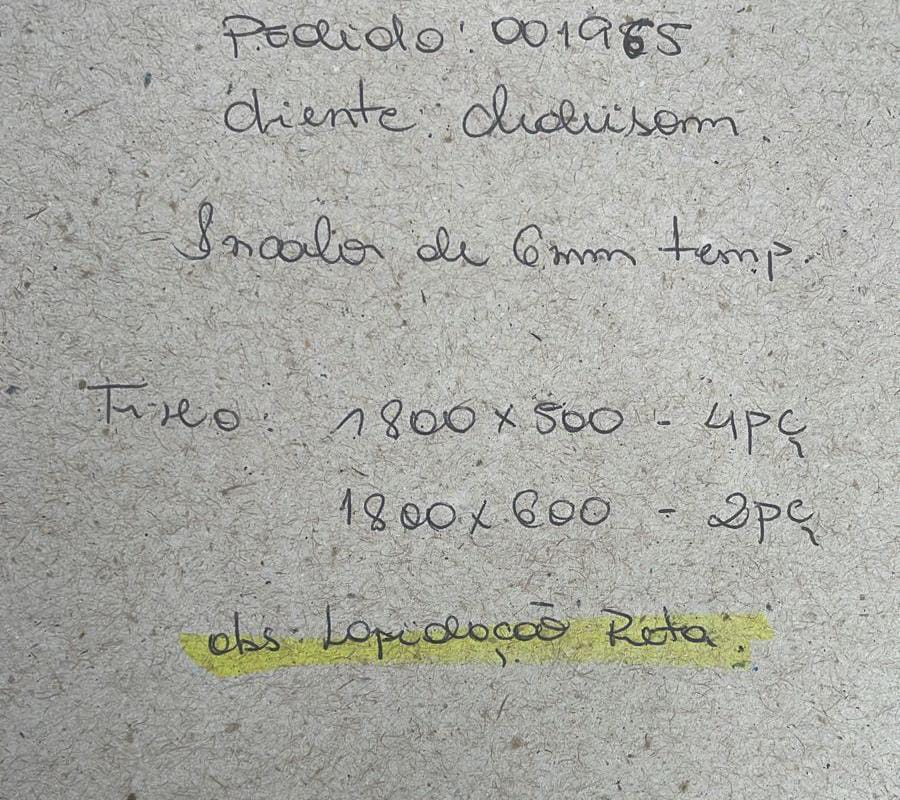 Pedido: 001965
Cliente:
Incolor de 6mm temp.
Fixo: 1800 x 500 - 4pç
1800 x 600 - 2pç
obs: Lapidação Reta.